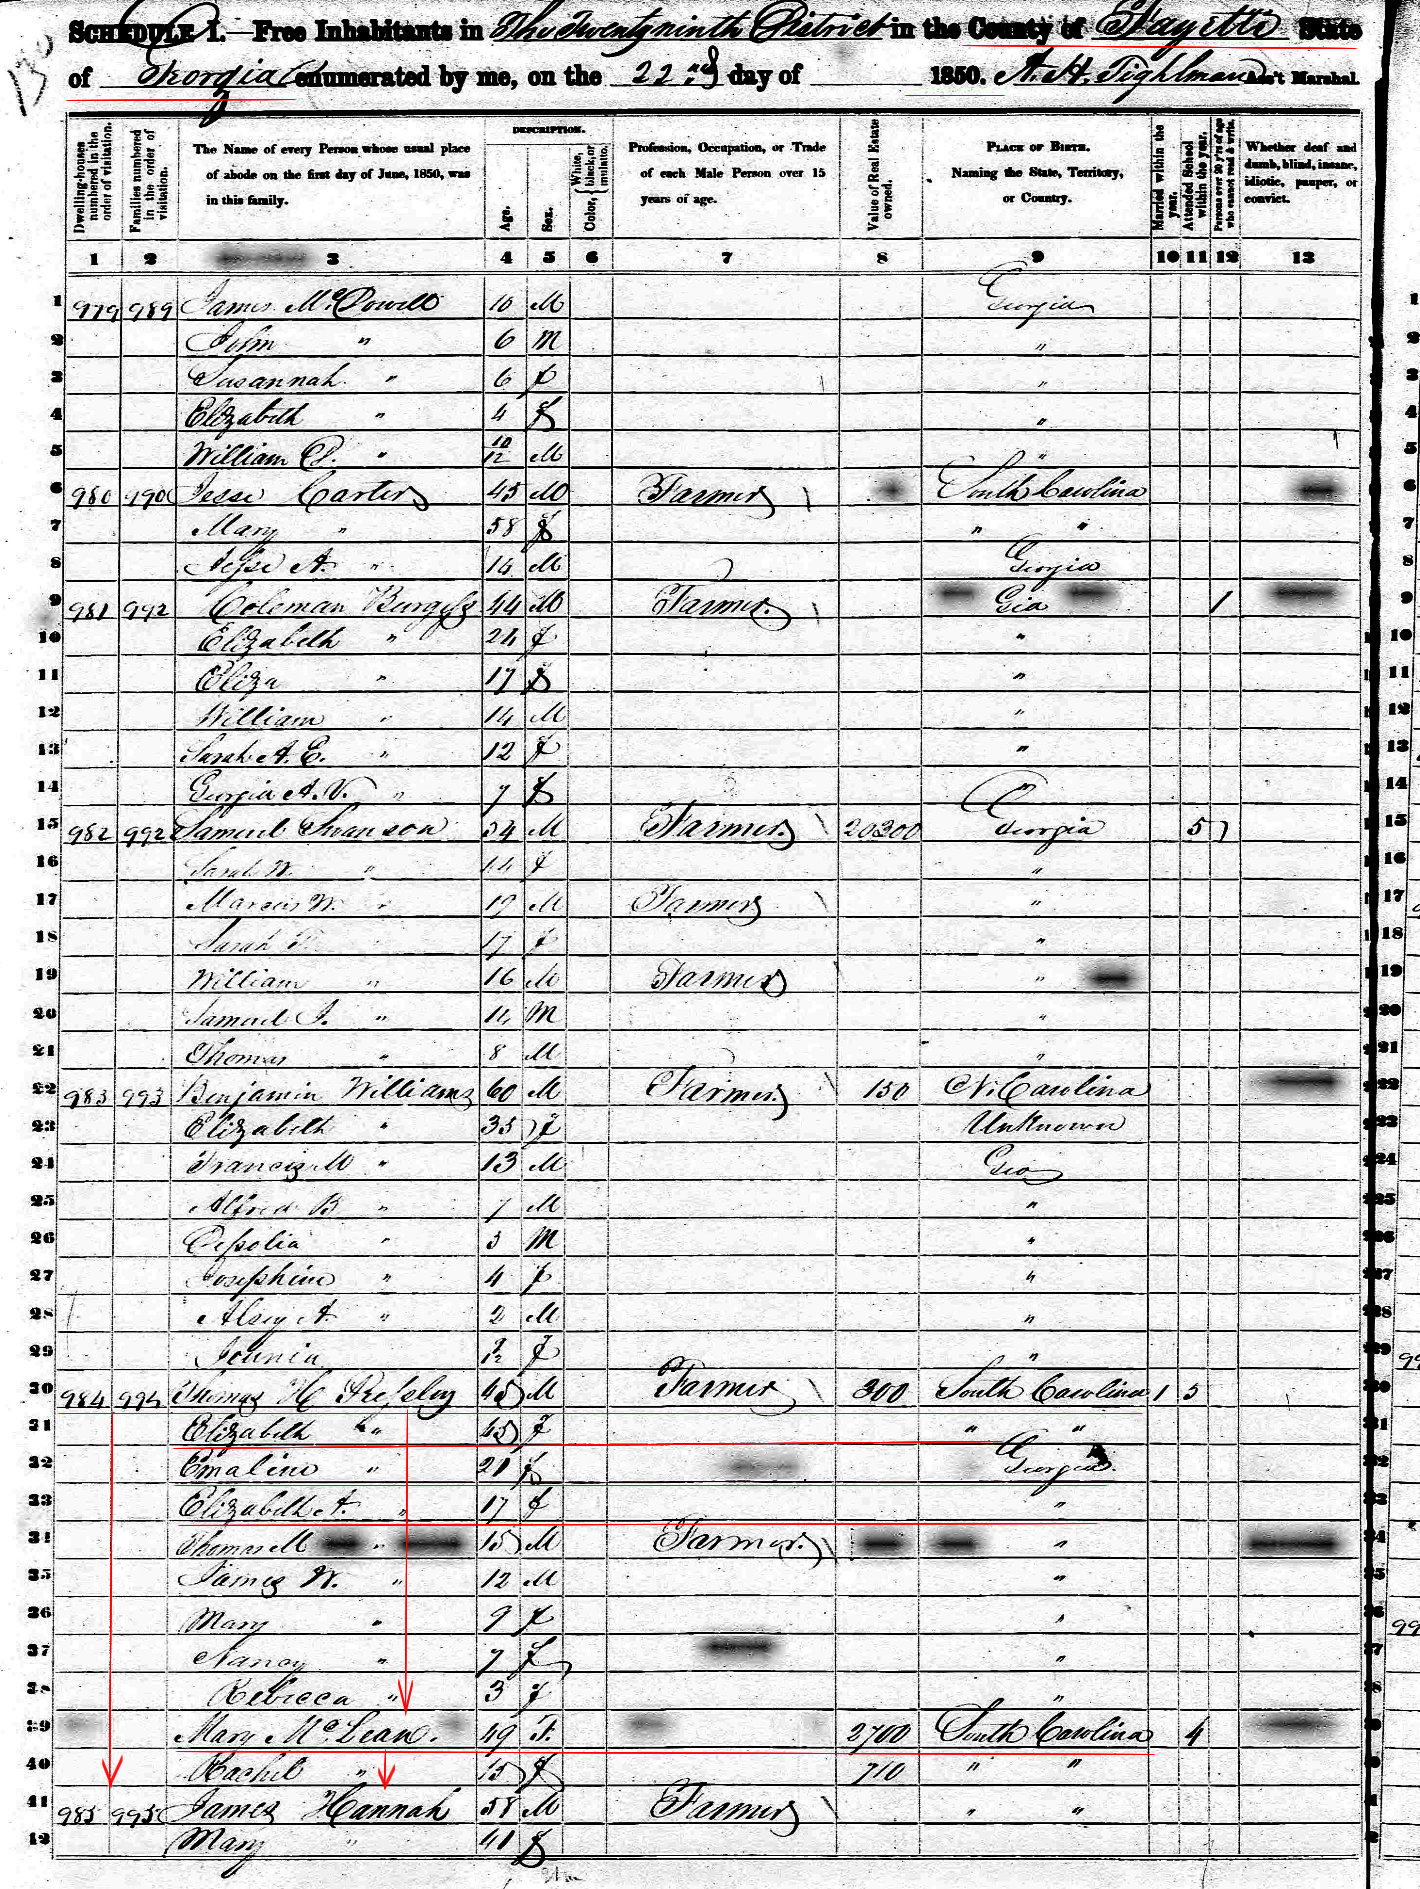 SCHEDULE I. Free Inhabitants in The Twenty ninth District in the County of Fayette State
of Georgia enumerated by me, on the 22nd day of 1850. A. H. Tighlman Ass't Marshal.
Dwelling-houses numbered in the order of visitation.
Families numbered in the order of visitation.
The Name of every Person whose usual place of abode on the first day of June, 1850, was in this family.
DESCRIPTION.
Age.
Sex.
Color, White, black, or mulatto.
Profession, Occupation, or Trade of each Male Person over 15 years of age.
Value of Real Estate owned.
PLACE OF BIRTH. Naming the State, Territory, or Country.
Married within the year.
Attended School within the year.
Persons over 20 y'rs of age who cannot read & write.
Whether deaf and dumb, blind, insane, idiotic, pauper, or convict.
1 2 3 4 5 6 7 8 9 10 11 12 13
1 979 989 James McDowell 10 M Georgia 1
2 John " 6 M " 2
3 Susannah " 6 f " 3
4 Elizabeth " 4 f " 4
5 William " 10/12 M " 5
6 980 990 Jesse Carter 45 M Farmer South Carolina 6
7 Mary " 58 f " " 7
8 Jesse A. " 14 M Georgia 8
9 981 992 Coleman Burgess 44 M Farmer. Gia 1 9
10 Elizabeth " 24 f " 10
11 Eliza " 17 f " 11
12 William " 14 M " 12
13 Sarah A. E. " 12 f " 13
14 Georgia A. V. " 7 f " 14
15 982 992 Samuel Swanson 54 M Farmer. 20300 Georgia 5 15
16 Sarah W. " 44 f " 16
17 Marcus W. " 19 M Farmer " 17
18 Sarah " 17 f " 18
19 William " 16 M Farmer " 19
20 Samuel J. " 14 M " 20
21 Thomas " 8 M " 21
22 983 993 Benjamin Williams 60 M Farmer. 150 N. Carolina 22
23 Elizabeth " 35 f Unknown 23
24 Francis M " 13 M Geo 24
25 Alfred B " 7 M " 25
26 " M " 26
27 Josephine " 4 f " 27
28 A. " 2 M " 28
29 f " 29
30 984 994 Thomas H 45 M Farmer 300 South Carolina 1 5
31 Elizabeth " 45 f " "
32 Emaline " 21 f Georgia.
33 Elizabeth A. " 17 f "
34 Thomas M " 15 M Farmer. "
35 James W. " 12 M "
36 Mary " 9 f "
37 Nancy " 7 f "
38 Rebecca " 3 f "
39 Mary McLean. 49 F. 2700 South Carolina 4
40 Rachel " 15 f 710 " "
41 985 995 James Hannah 58 M Farmer " "
42 Mary " 41 f